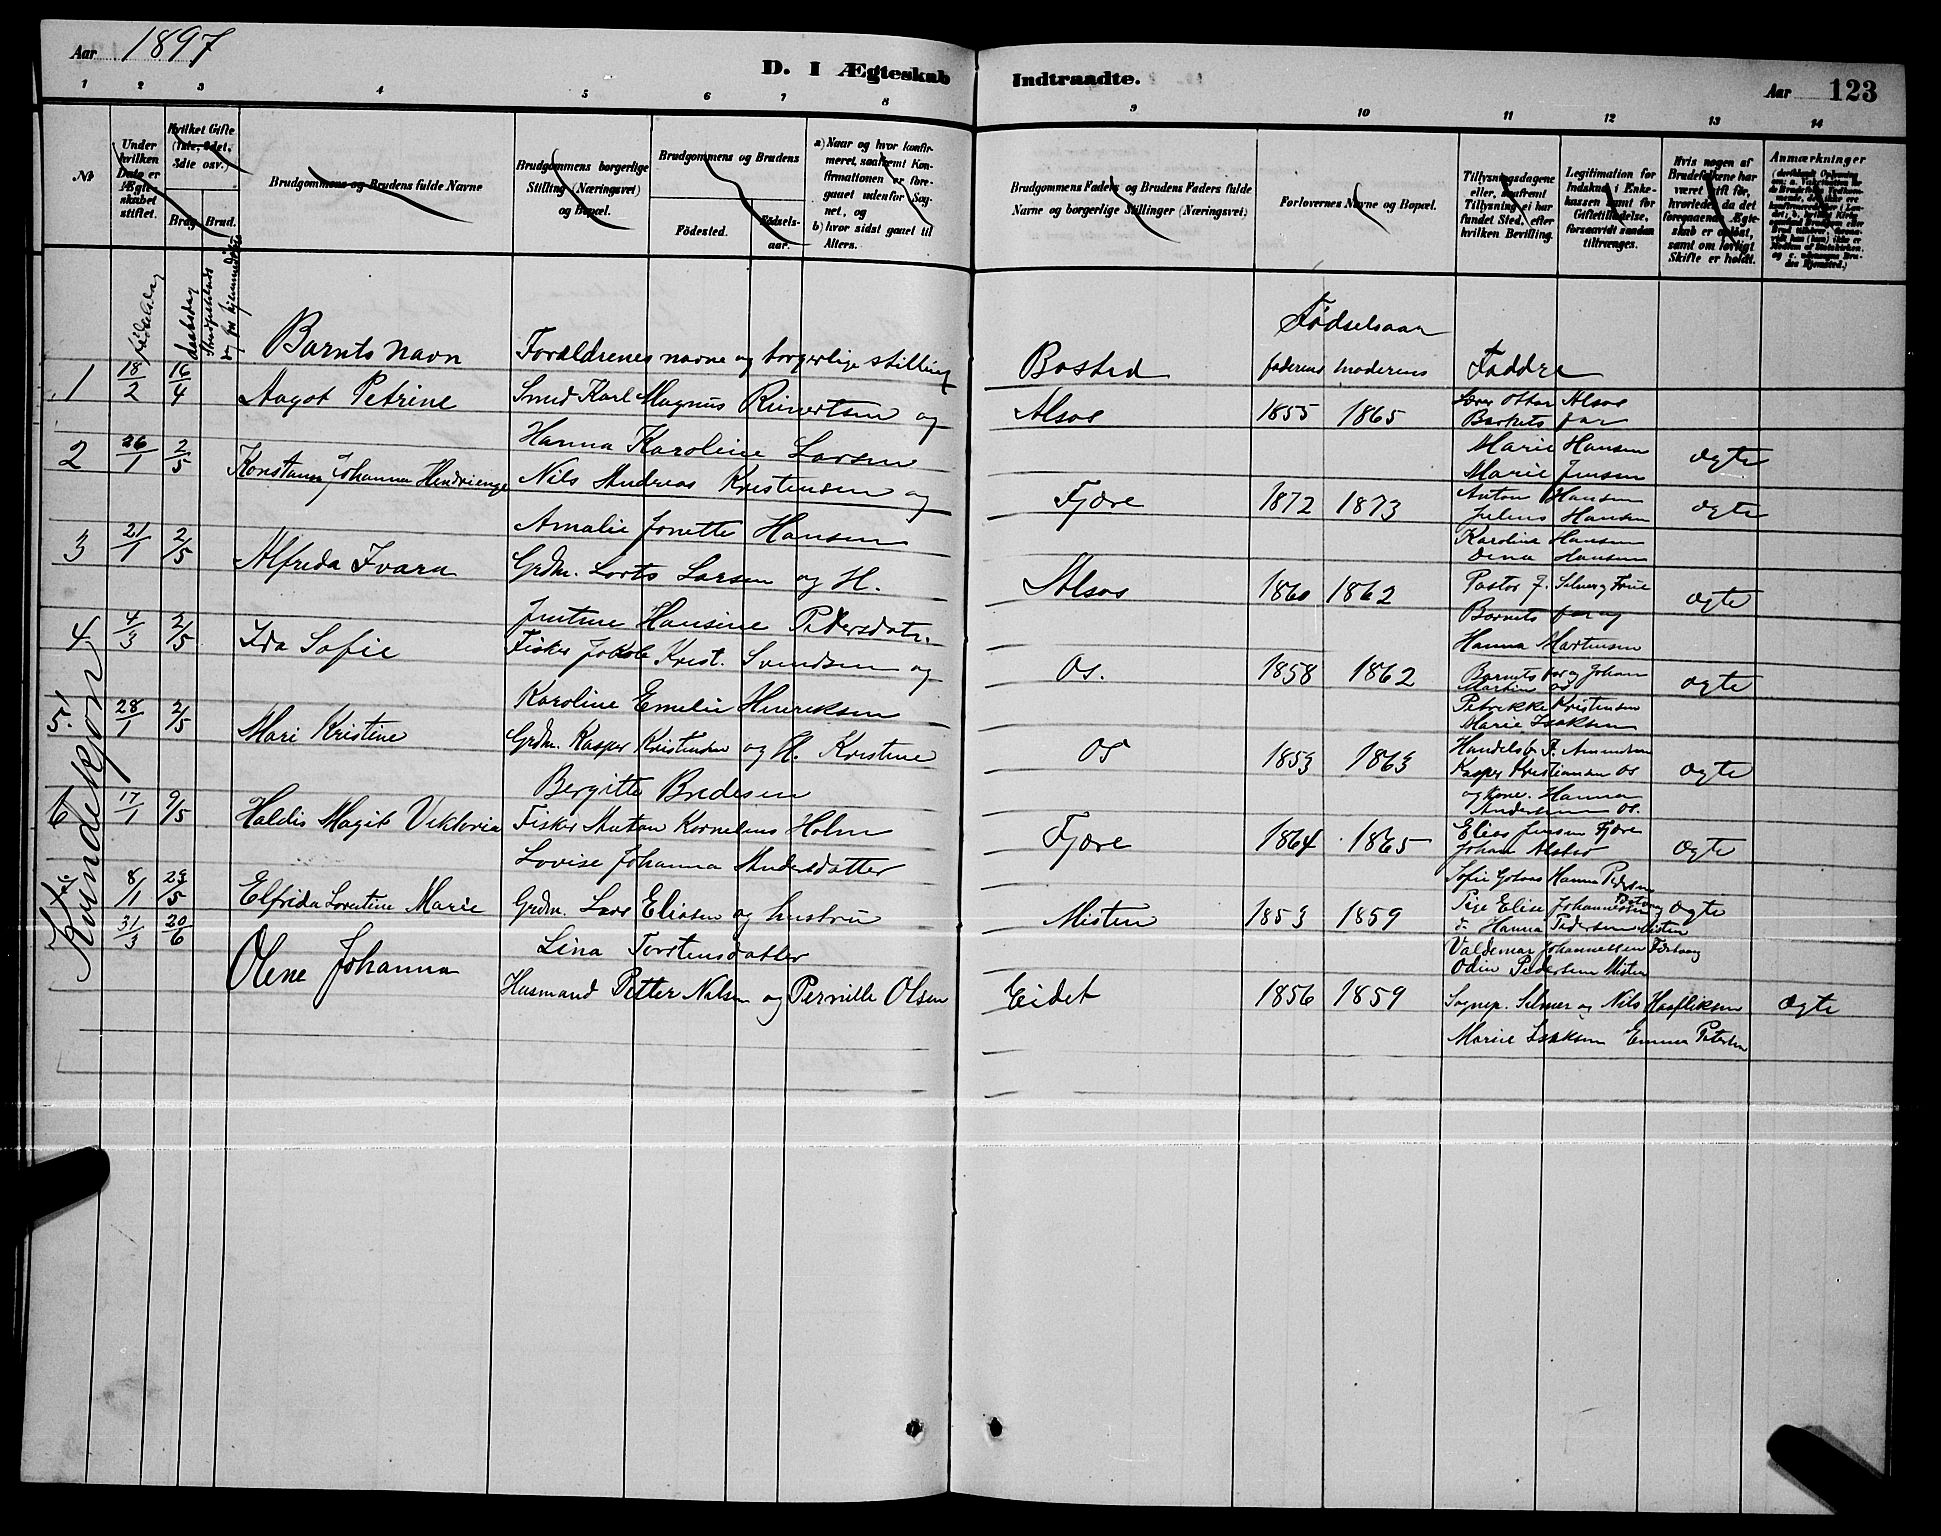 Aar 1897
D. I Ægteskab Indtraadte.
Aar 123
1 2 3 4 5 6 7 8 9 10 11 12 13 14
Nr.
Under hvilken Dato er Ægteskabet stiftet.
Hvilket Gifte (1ste, 2det, 3die osv.)
Brudg. Brud.
Brudgommens og Brudens fulde Navne
Brudgommens borgerlige Stilling (Næringsvei) og Bopæl.
Brudgommens og Brudens
Födested.
Födselsaar.
a) Naar og hvor konfirmeret, saafremt Konfirmationen er foregaaet udenfor Sognet, og
b) hvor sidst gaaet til Alters.
Brudgommens Faders og Brudens Faders fulde Navne og borgerlige Stillinger (Næringsvei)
Forlovernes Navne og Bopæl.
Tillysningsdagene eller, saafremt Tillysning ei har fundet Sted, efter hvilken Bevilling.
Legitimation for Indskud i Enkekassen samt for Giftetilladelse, forsaavidt saadan tiltrænges.
Hvis nogen af Brudefolkene har været gift før, hvorledes da det foregaaende Ægteskab er opløst, samt om lovligt Skifte er holdt.
Anmærkninger
fødselsdag
daabsdag
Barnets navn
Forældrenes navne og borgerlige stilling
Bosted
Fødselsaar
faderens moderens
Faddre
1 18/2 16/4 Aagot Petrine Smed Karl Magnus Rinertsen og
Hanna Karoline Larsen
Alsos 1855 1865
Ottar Alsos
far
Marie Hansen
Marie Jensen
ægte
2 26/1 2/5 Johanna Nils Andreas Kristensen og
Amalie Jonette Hansen
Fjære 1872 1873
Anton Hansen
Julius Hansen
Karolina Hansen
Dina Hansen
ægte
3 21/1 2/5 Alfreda Ivara Grdm. Larsen og H.
Justine Hansine Pedersdatr.
Alsos 1860 1862
Pastor J. Selmer og Frue
Barnets far og
Hanna Martensen
ægte
4 4/3 2/5 Ida Sofie Fisker Jakob Krist. Svendsen og
Karoline Emelie Henriksen
Os. 1858 1862
Barnets far og Johan
Petrikke Kristensen
Marie Isaksen
ægte
5 28/1 2/5 Mari Kristine Grdm. Kasper Kristensen og H. Kristine
Bergitte Bredesen
Os 1853 1863
Handelsb. P. Amundsen
Kasper Kristiansen Os
og kone. Hanna
Andersen Os.
ægte
6 17/1 9/5 Haldis Magit Viktoria Fisker Anton Kornelius Holm
Lovise Johanna Andersdatter
Fjære 1864 1865
Elias Jensen Fjære
Johan
Sofie Hanna Pedersen
ægte
8/1 23/5 Elfrida Lorentine Marie Grdm. Lars Eliasen og hustru
Lina Torstensdatter
Misten 1853 1859
Pige Elise Johannessen
Hanna Pedersen Misten
Valdemar Johannessen
Odin Pedersen Misten
ægte
31/3 20/6 Olene Johanna Husmand Petter Nilsen og Pernille Olsen
Eidet 1856 1859
Sognep. Selmer og Nils
Marie Isaksen Emma
ægte
Kvindekjøn